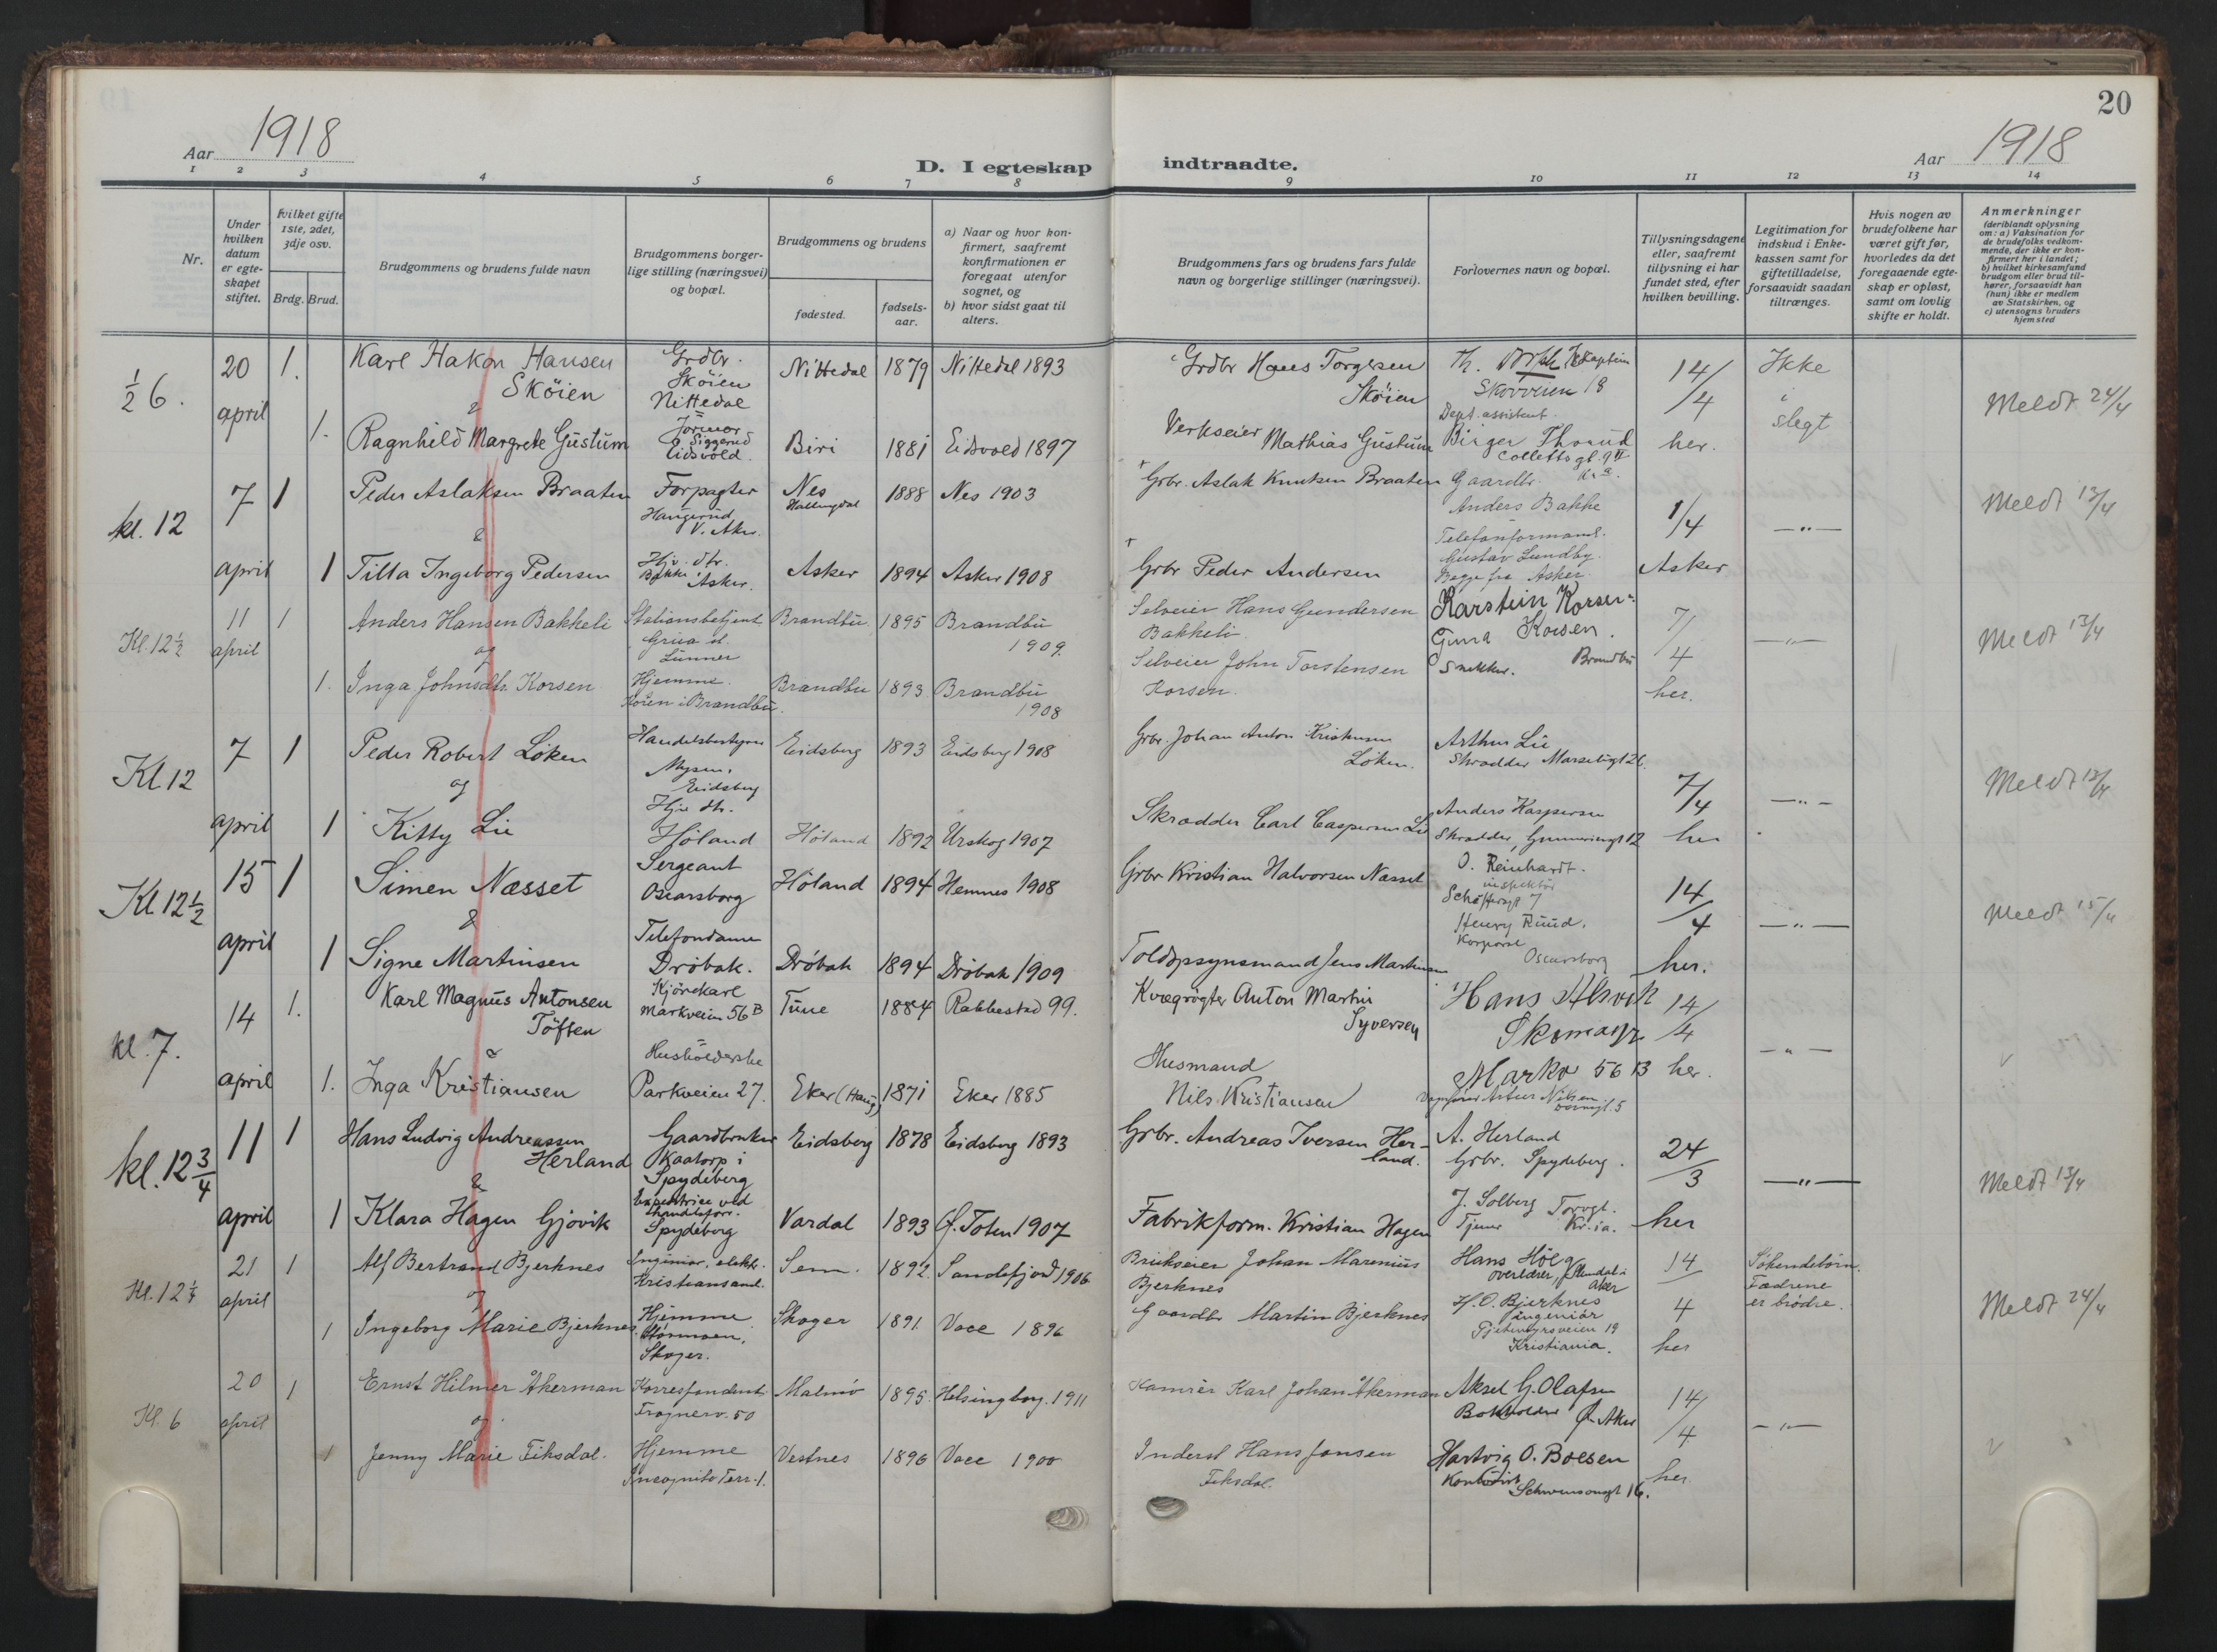 20
Aar 1918
D. I egteskap indtraadte.
Aar 1918
1 2 3 4 5 6 7 8 9 10 11 12 13 14
Nr.
Under hvilken datum er egteskapet stiftet.
Hvilket gifte 1ste, 2det, 3dje osv.
Brdg. Brud.
Brudgommens og brudens fulde navn
Brudgommens borgerlige stilling (næringsvei) og bopæl.
Brudgommens og brudens
fødested.
fødselsaar.
a) Naar og hvor konfirmert, saafremt konfirmationen er foregaat utenfor sognet, og
b) hvor sidst gaat til alters.
Brudgommens fars og brudens fars fulde navn og borgerlige stillinger (næringsvei).
Forlovernes navn og bopæl.
Tillysningsdagene eller, saafremt tillysning ei har fundet sted, efter hvilken bevilling.
Legitimation for indskud i Enkekassen samt for giftetilladelse, forsaavidt saadan tiltrænges.
Hvis nogen av brudefolkene har været gift før, hvorledes da det foregaaende egteskap er opløst, samt om lovlig skifte er holdt.
Anmerkninger
(deriblandt oplysning om: a) Vaksination for de brudefolks vedkommende, der ikke er konfirmert her i landet; b) hvilket kirkesamfund brudgom eller brud tilhører, forsaavidt han (hun) ikke er medlem av Statskirken, og c) utensogns bruders hjemsted
½ 6. 20 april 1. Karl Hakon Hansen Sköien Grdbr. Sköien Nittedal Nittedal 1879 Nittedal 1893 Grdbr Hans Torgersen Sköien Th. Kaptein Skovveien 18 14/4 her. Ikke slegt Meldt 24/4
&
1. Ragnhild Margrete Gustum Siggerud Eidsvold Biri 1881 Eidsvold 1897 Verkseier Mathias Gustum Dept. assistent Birger Thorud Collettsgt. 9 II Kr.a.
kl. 12 7 april 1 Peder Aslaksen Braaten Forpagter Haugerud V. Aker Nes Hallingdal 1888 Nes 1903 Grbr. Aslak Knutsen Braaten Gaardbr. Anders Bakke 1/4 Asker —"— Meldt 13/4
&
1 Tilla Ingeborg Pedersen Hjv. dtr. Bakke Asker. Asker 1894 Asker 1908 Grbr Peder Andersen Telefonformand. Gustav Lundby. Begge fra Asker
Kl. 12½ 11 april 1 Anders Hansen Bakkeli Stationsbetjent Grua st. Lunner Brandbu 1895 Brandbu 1909. Selveier Hans Gundersen Bakkeli. Karstein Korsen 7/4 her. —"— Meldt 13/4
og
1. Inga Johnsdtr. Korsen Hjemme. Korsen i Brandbu. Brandbu 1893 Brandbu 1908 Selveier John Torstensen Korsen. Korsen. Snekker. Brandbu
Kl 12 7 april 1 Peder Robert Löken Handelsbestyrer Mysen, Eidsberg Eidsberg 1893 Eidsberg 1908 Grbr. Johan Anton Kristiansen Löken. Arthur Lie Skrædder 7/4 her —"— Meldt 13/4
og
1 Kitty Lie Hjv. dtr. Höland Höland 1892 Urskog 1907 Skrædder Carl Caspersen Lie Anders Kaspersen Skrædder, 12
Kl 12½ 15 april 1 Simen Næsset Sergeant Oscarsborg Höland 1894 Hemnes 1908 Grbr Kristian Halvorsen Næsset O. Reinhardt. inspektör 7 14/4 her. —"— Meldt 15/4
&
1 Signe Martinsen Telefondame Dröbak. Dröbak 1894 Dröbak 1909 Toldopsynsmand Jens Martinsen Henry Ruud. Korporal Oscarsborg
kl. 7. 14 april 1. Karl Magnus Antonsen Töften Kjörekarl Markveien 56 B Tune 1884 Rakkestad 99. Kvægrögter Anton Martin Syversen Hans Skomager Markv 56 B 14/4 her. —"— v
&
1. Inga Kristiansen Husholderske Parkveien 27. Eker (Haug) 1871 Eker 1885 Husmand Nils Kristiansen Artur Nilsen 5
kl. 12¾ 11 april 1 Hans Ludvig Andreassen Herland Gaardbruker Kaatorp i Spydeberg Eidsberg 1878 Eidsberg 1893 Grbr. Andreas Iversen Herland. A. Herland Grbr. Spydeberg. 24/3 her —"— Meldt 13/4
&
1 Klara Hagen Gjövik Expeditrice ved Handelsfor. Spydeberg Vardal 1893 Ö. Toten 1907 Fabrikform. Kristian Hagen J. Solberg Torvgt. Kr.ia.
Kl. 12¼ 21 april 1 Alf Bertrand Bjerknes Ingeniör, elektr. Kristiansand. Sem. 1892. Sandefjord 1906 Brukseier Johan Marenius Bjerknes Hans Höeg overlærer, Aker 14/4 her Sökendebörn. Fædrene er brödre. Meldt 24/4
og
1 Ingeborg Marie Bjerknes Hjemme, Skoger. Skoger 1891 Vace 1896 Gaardbr Martin Bjerknes H. O. Bjerknes ingeniör 19 Kristiania.
Kl. 6 20 april 1 Ernst Hilmer Åkerman Korrespondent Frognerv. 50 Malmö 1895. Helsingborg. 1911 Kamrér Karl Johan Åkerman Aksel G. Olafsen Bokholder Ö. Aker 14/4 her. —"— v
og
1 Jenny Marie Fiksdal. Hjemme Incognito Terr. 1. Vestnes 1896 Vace 1900 Inderst Hans Jonsen Fiksdal. Hartvig O. Boesen Kontorist Schwensensgt 16.